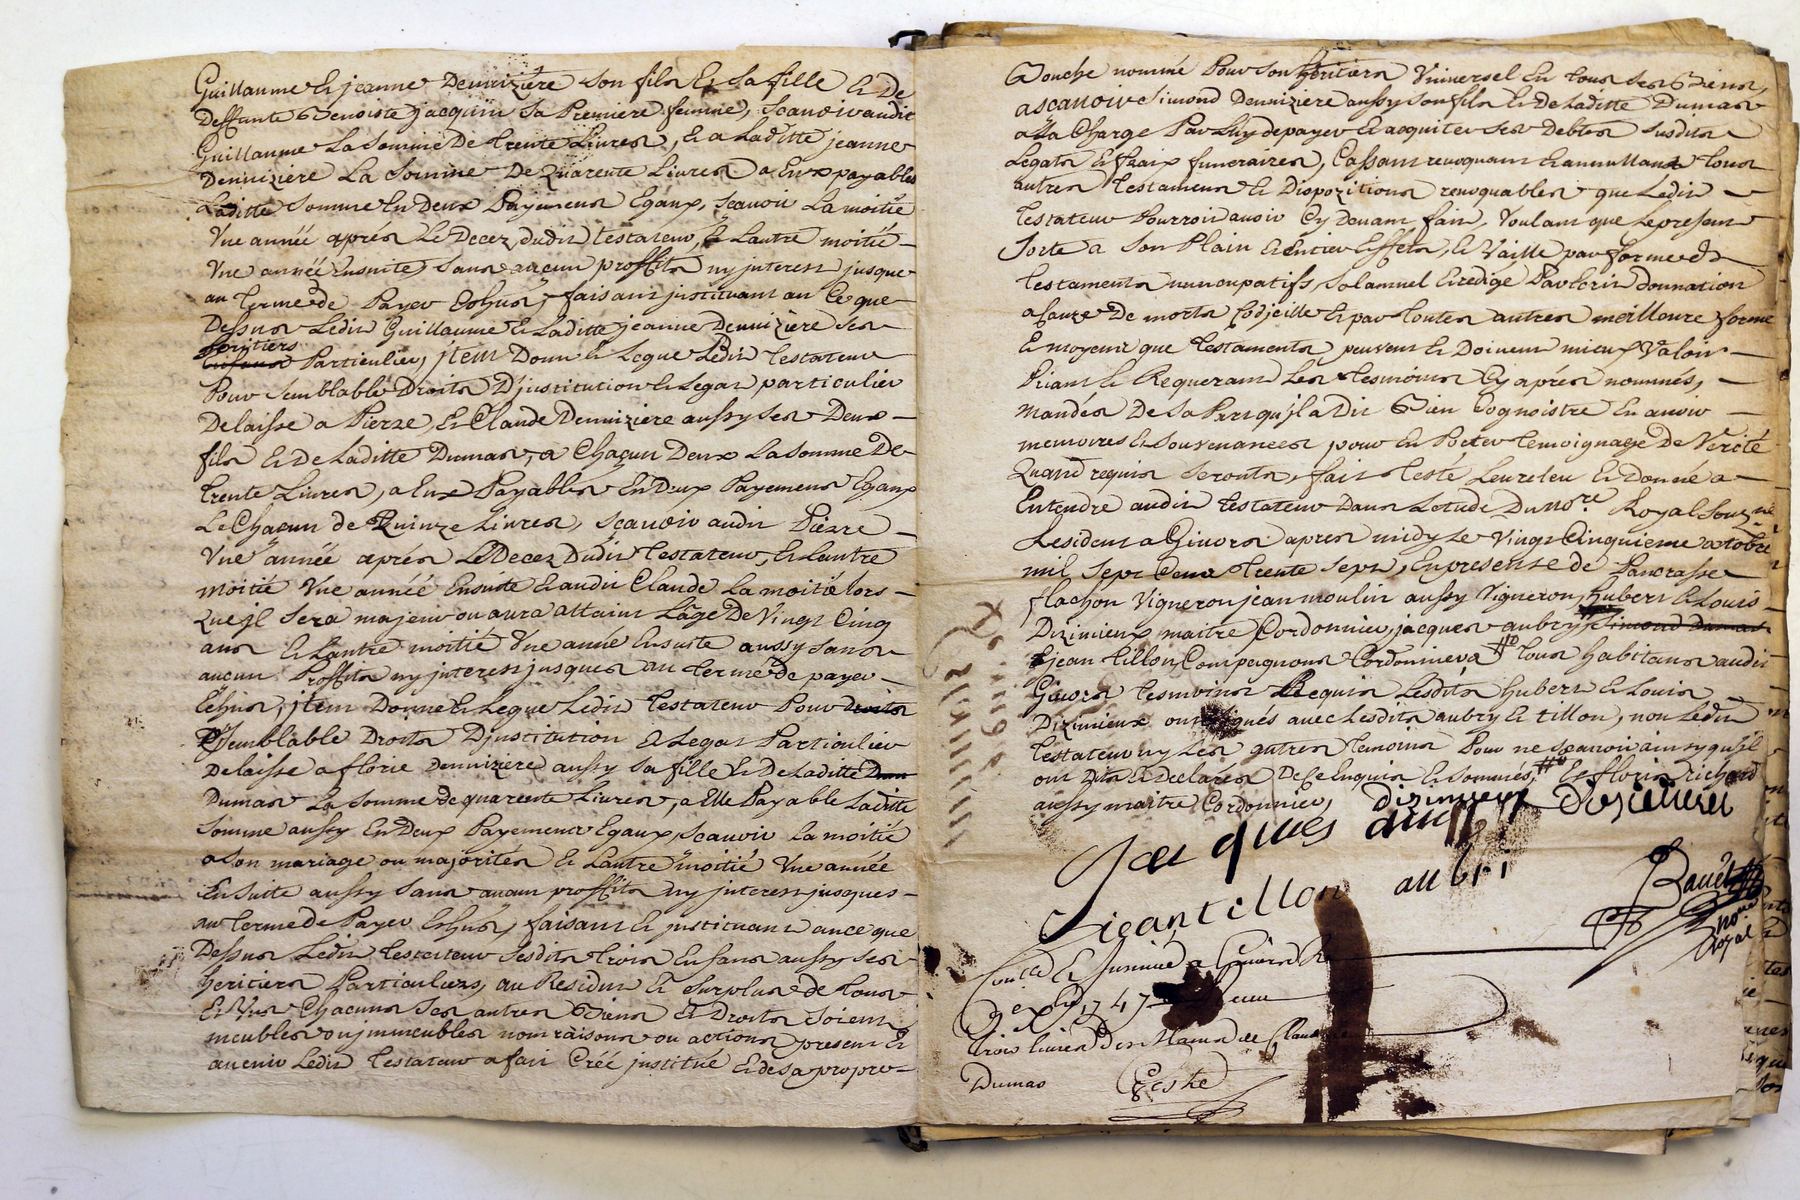 Guillaume Et jeanne Denuizière son fils Et sa fille Et de
Deffunte Benoiste jacquin sa Premiere femme, scauoir audit
Guillaume La somme De trente Liures, Et a Laditte jeanne
Denuiziere La Somme De quarente Liures a Eux payables
Laditte somme En Deux Payemens Egaux, scauoir La moitié
Vne année aprés Le Decez dudit testateur, & Lautre moitié
Vne année Ensuite, sans aucun proffits ny interest jusque
au terme de Payer Eshus, faisant instituant au Ce que
Dessus Ledit Guillaume Et Laditte jeanne Denuizière ses
heritiers
Particulier, jtem Donne & Legue Ledit testateur
Pour semblable Droits D'institution Et Legat particulier
Delaissé a Pierre, Et Claude Denuiziere aussy ses Deux
fils Et De Laditte Dumas, a Chacun Deux La somme De
trente Liures, a Eux Payables En Deux Payemens Egaux
Le Chacun de Quinze Liures, scauoir audit Pierre
Vne année aprés Le Decez Dudit testateur, Et Lautre
moitié Vne année Ensuite Et audit Claude La moitié lors
Que jl sera majeur ou aura attaint Lâge De Vingt Cinq
ans Et Lautre moitié Vne année Ensuite aussy sans
aucun Proffits ny interest jusques au terme de payer
Eshus, jtem Donne Et Legue Ledit testateur Pour Droits
Semblable Droits D'institution Et Legat Particulier
Delaisse a florie Denuiziere aussy sa fille Et De Laditte Dum
Dumas La somme de quarente Liures, a Elle Payable Laditte
Somme aussy En Deux Payemens Egaux, scauoir la moitié
a son mariage ou majorités Et Lautre moitié Vne année
Ensuite aussy sans aucun proffits ny interest jusques
au terme de Payer Eshus, faisant Et instituant au ce que
Dessus Ledit testateur sesdits trois Enfans aussy ses
heritiers Particuliers, au Residut Et surplus de tous
Et Vns Chacuns ses autres Biens Et Droits soient
meubles ou jmmeubles nom raisons ou actions present Et
auenir Ledit testateur a fait Créé institué Et de sa propre
Bouche nommé Pour son heritiers Vniuersel En tous ses Biens,
ascauoir Simond Denuiziere aussy son fils Et de Laditte Dumas
a La Charge Par Luy de payer Et acquiter ses Debtes susdits
Legats Et fraix funeraires, Cassant reuoquant Et annullant tous
autres testamens Et Dispositions reuoquables que Ledit
testateur Pourroit auoir Cy Deuant fait, Voulant que Le present
Sorte a son Plain Et Entier Effets, Et Vaille par forme de
testaments nuncupatifs, solamnel Et redigé Par Ecrit donnation
a Cauze De morts Codjcille Et par toutes autres meilleure forme
Et moyens que testaments peuuent Et Doiuent mieux Valoir
Priant Et Requerant Les tesmoins Cy aprés nommés,
mandés De sa Part qu'jl a Dit Bien Cognoistre En auoir
memoires Et souuenances pour En Porter temoignage De Verité
Quand requis seronts, fait Testé Leu releu Et donné a
Entendre audit testateur Dans Letude Du Nore. Royal Sousné
Resident a Giuors apres midy Le Vingt Cinquieme octobre
mil Sept Cent trente sept, En presense de Pancrasse
flachon Vigneron jean moulin aussy Vigneron, hubert Et Louis
Dizimieux maitre Cordonnier, jacques aubry, Simond Dumas
& jean tillon Compagnons Cordonniers # tous habitans audit
Giuors tesmoins Requis Lesdits hubert Et Louis
Dizimieux ont signés auec Lesdits aubry Et tillon, non Ledit
testateur ny Les autres temoins Pour ne scauoir ainsy qu'jl
ont Dits Et declarés De ce Enquis Et sommés, # Et florin richard
aussy maitre Cordonnier,
dizimieux Dizimieux
Jacques aubri
aubri
jean tillon
Bauet
Nore
Royal
Conlle Et Jnsinué a Giuors Le
9e xbre 1747
trois liures des mains de Claude
Dumas Peste